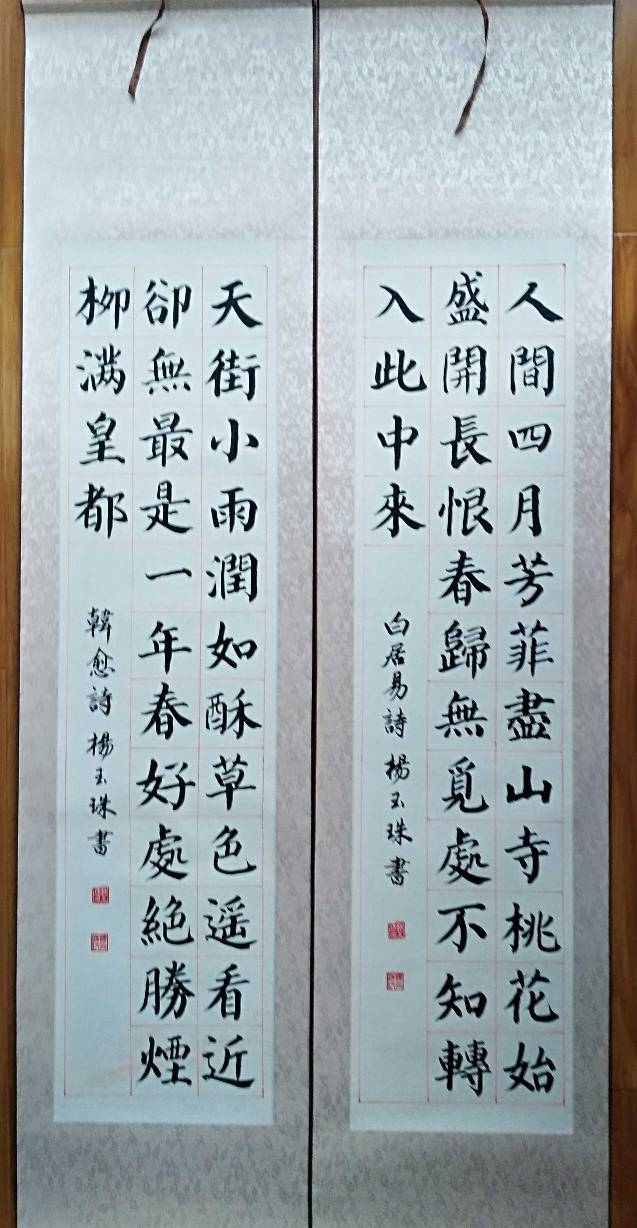 人間四月芳菲盡山寺桃花始
盛開長恨春歸無覓處不知轉
入此中來
白居易詩 楊玉珠書
天街小雨潤如酥草色遥看近
卻無最是一年春好處絕勝煙
柳满皇都
韓愈詩 楊玉珠書